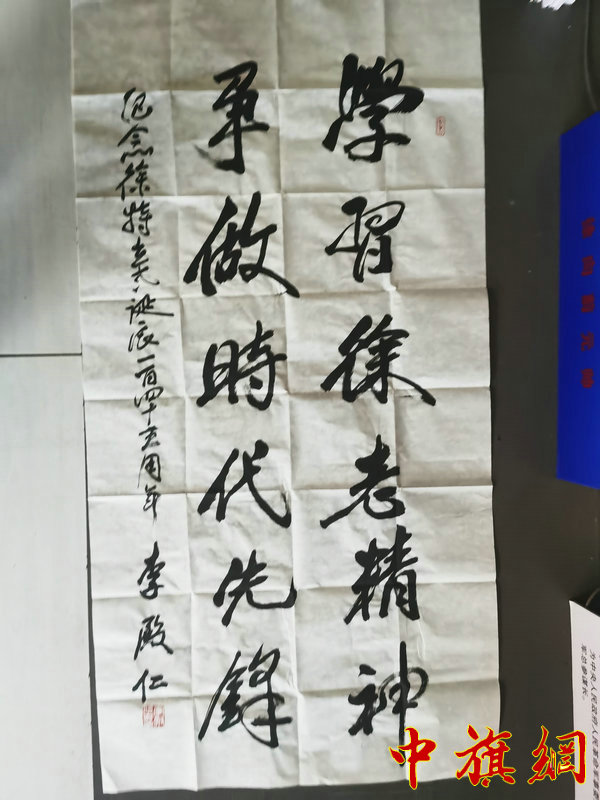 學習徐老精神
争做時代先鋒
纪念徐特立老诞辰一百四十五周年 李殿仁
中旗網